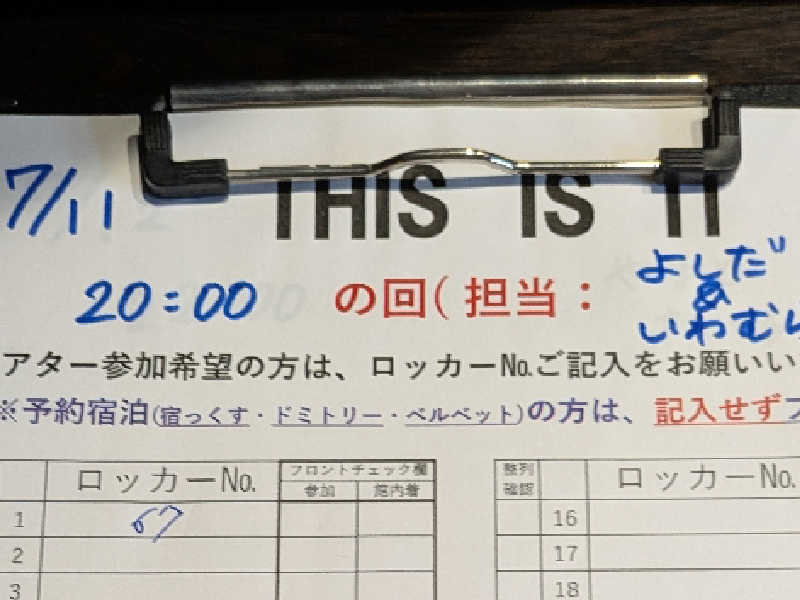 7/11
THIS IS IT
20:00 の回(担当：よしだ
&
いわむら
アター参加希望の方は、ロッカー№ご記入をお願いい
※予約宿泊(宿っくす・ドミトリー・ベルベット)の方は、記入せずフ
ロッカー№. フロントチェック欄 整列確認 ロッカー№.
参加 館内着
1 67 16
2 17
3 18